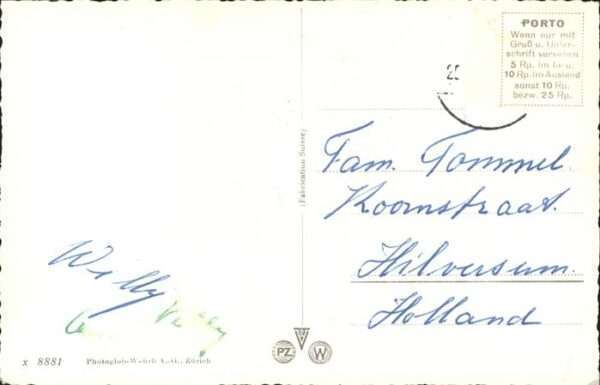 PORTO
Wenn nur mit
Gruß u. Unter-
schrift versehen
5 Rp. im In- u.
10 Rp. im Ausland
sonst 10 Rp.
bezw. 25 Rp.
25
(Fabrication Suisse)
Fam. Tommel.
Koornstraat.
Hilversum.
Holland
Willy
x 8881
Photoglob-Wehrli A.-G., Zürich
PZ
W